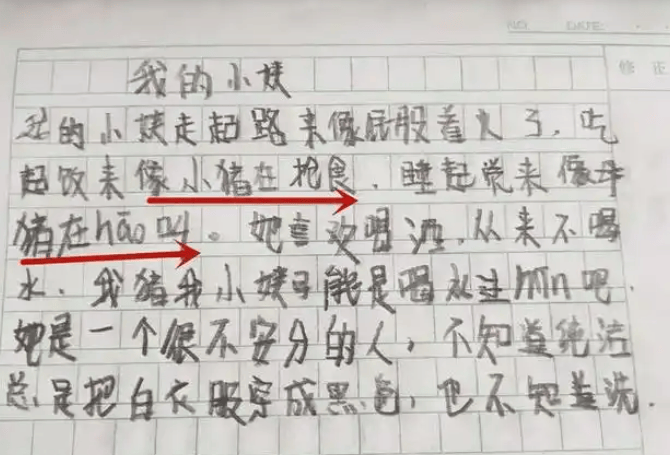 NO. DATE:
我的小姨
修正
我的小姨走起路来像屁股着火了，吃
起饭来像小猪在抢食，睡起觉来像母
猪在hāo叫。她喜欢喝酒，从来不喝
水，我猪我小姨可能是喝水过mǐn吧，
她是一个很不安分的人，不知道纯洁
总是把白衣服穿成黑色，也不知道洗．